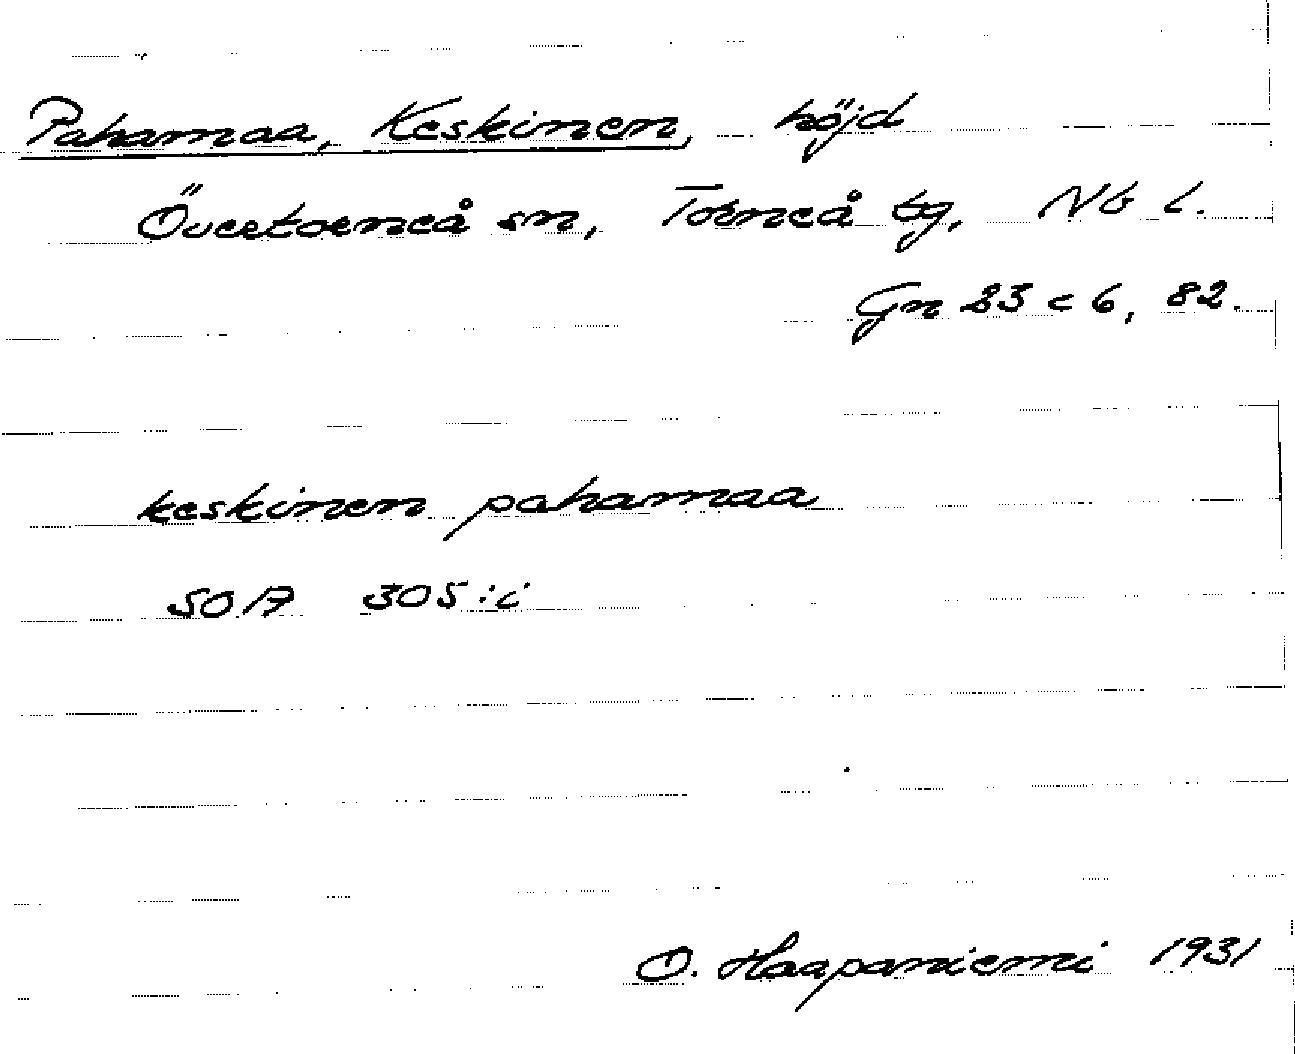 Pahamaa, Keskinen, höjd
Övertorneå sn, Torneå tg, Nb l.
Gn 23 c 6, 82.
keskinen pahamaa
SOA 305:i
O. Haapaniemi 1931